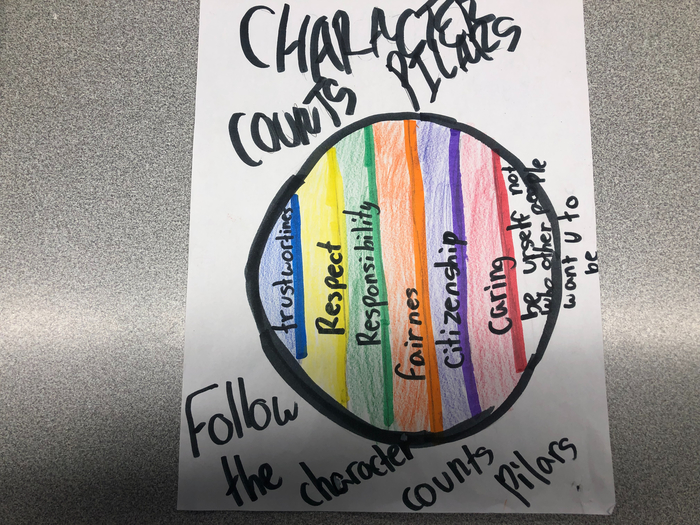 CHARACTER
COUNTS PILLARS
trustwordines
Respect
Responsibility
fairnes
Citizenship
Caring
be urself not
who other people
want u to
be
Follow
the character
counts pilars